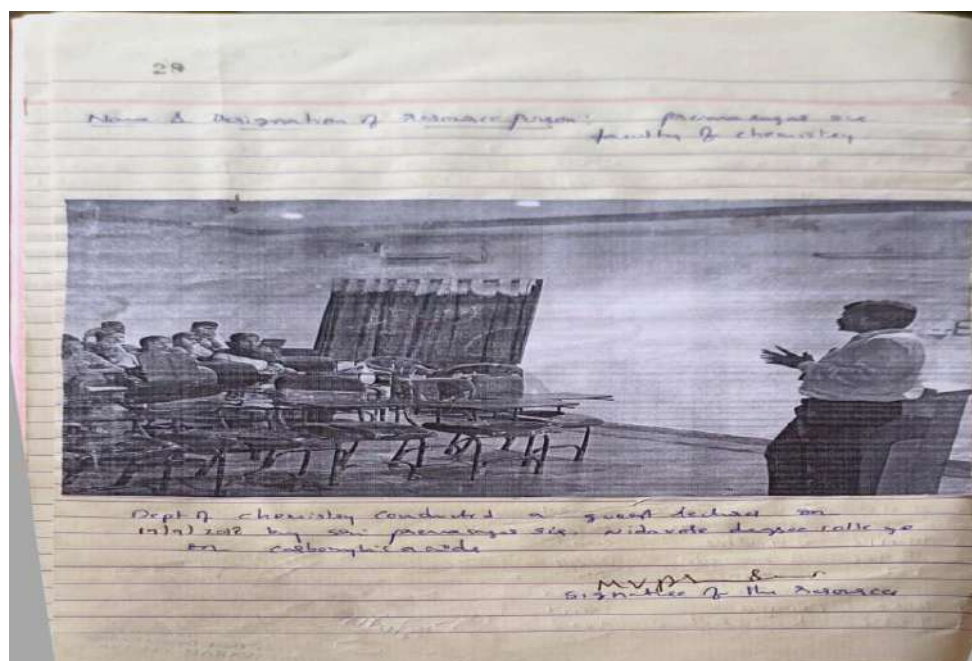 29
Name & Designation of Resource person: premsagar sir
faculty of chemistry
Dept of chemistry Conducted a guest lecture on
by sri premsagar sir. Nidavole degree college
on carboxylic acids
Signature of the Resource